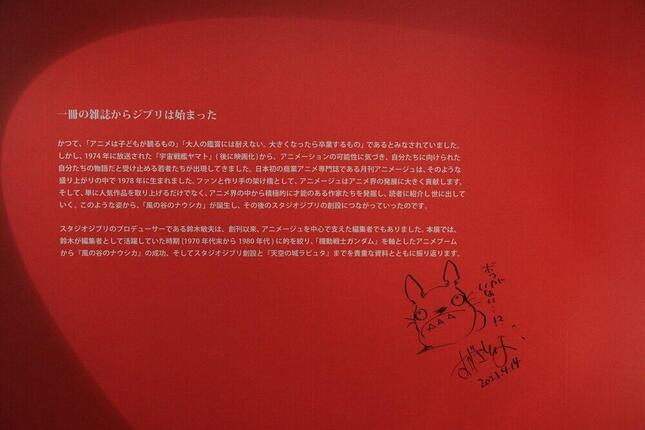 一冊の雑誌からジブリは始まった
かつて、「アニメは子どもが観るもの」「大人の鑑賞には耐えない。大きくなったら卒業するもの」であるとみなされていました。
しかし、1974年に放送された『宇宙戦艦ヤマト』(後に映画化)から、アニメーションの可能性に気づき、自分たちに向けられた
自分たちの物語だと受け止める若者たちが出現してきました。日本初の商業アニメ専門誌である月刊アニメージュは、そのような
盛り上がりの中で1978年に生まれました。ファンと作り手の架け橋として、アニメージュはアニメ界の発展に大きく貢献します。
そして、単に人気作品を取り上げるだけでなく、アニメ界の中から積極的に才能のある作家たちを発掘し、読者に紹介し世に出して
いく。このような姿から、「風の谷のナウシカ」が誕生し、その後のスタジオジブリの創設につながっていったのです。
スタジオジブリのプロデューサーである鈴木敏夫は、創刊以来、アニメージュを中心で支えた編集者でもありました。本展では、
鈴木が編集者として活躍していた時期(1970年代末から1980年代)に的を絞り、「機動戦士ガンダム」を軸としたアニメブーム
から『風の谷のナウシカ』の成功、そしてスタジオジブリ創設と『天空の城ラピュタ』までを貴重な資料とともに振り返ります。
2023.4.14